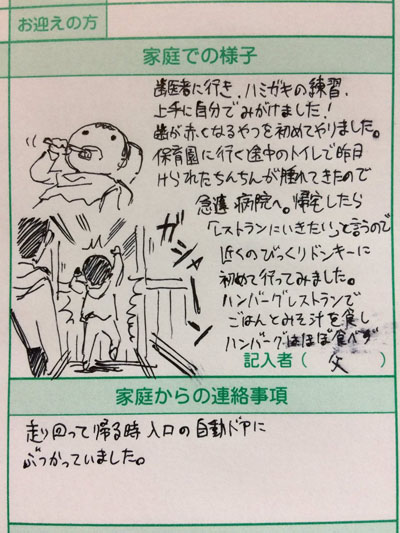 お迎えの方
家庭での様子
歯医者に行き、ハミガキの練習、
上手に自分でみがけました！
歯が赤くなるやつを初めてやりました。
保育園に行く途中のトイレで昨日
けられたちんちんが腫れてきたので
急遽病院へ。帰宅したら
「レストランにいきたい」と言うので
近くのびっくりドンキーに
初めて行ってみました。
ハンバーグレストランで
ごはんとみそ汁を食し
ハンバーグはほぼ食べず
ガシャーン
記入者（ 父 ）
家庭からの連絡事項
走り回って帰る時入口の自動ドアに
ぶつかっていました。